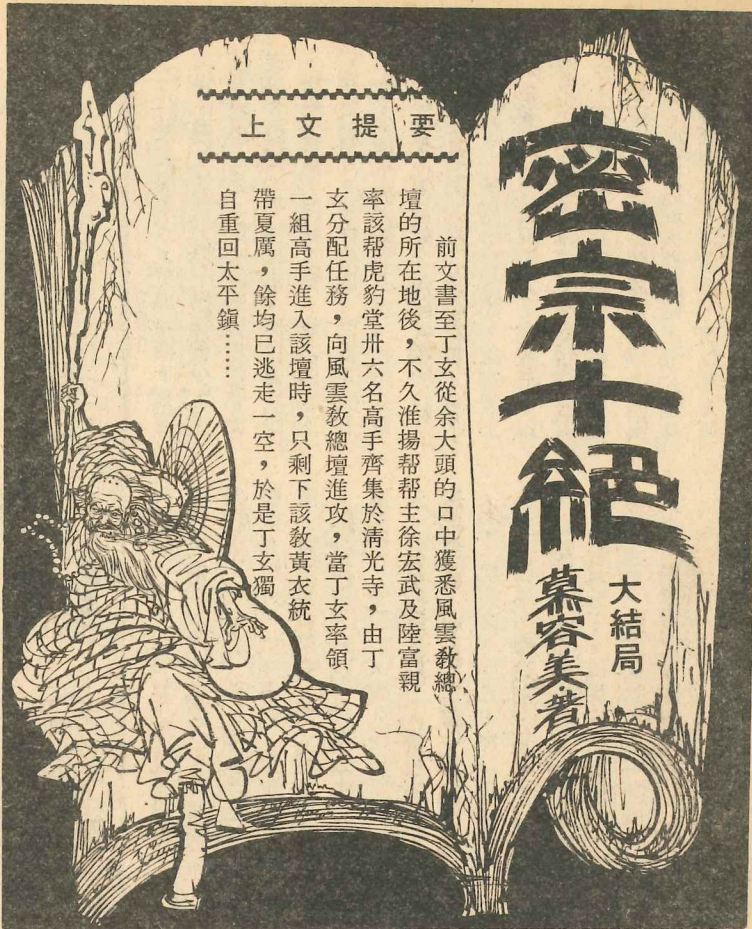 密宗十絕
大結局
慕容美著
上文提要
前文書至丁玄從余大頭的口中獲悉風雲教總
壇的所在地後，不久淮揚帮帮主徐宏武及陸富親
率該帮虎豹堂卅六名高手齊集於淸光寺，由丁
玄分配任務，向風雲教總壇進攻，當丁玄率領
一組高手進入該壇時，只剩下該教黃衣統
帶夏厲，餘均已逃走一空，於是丁玄獨
自重回太平鎭……